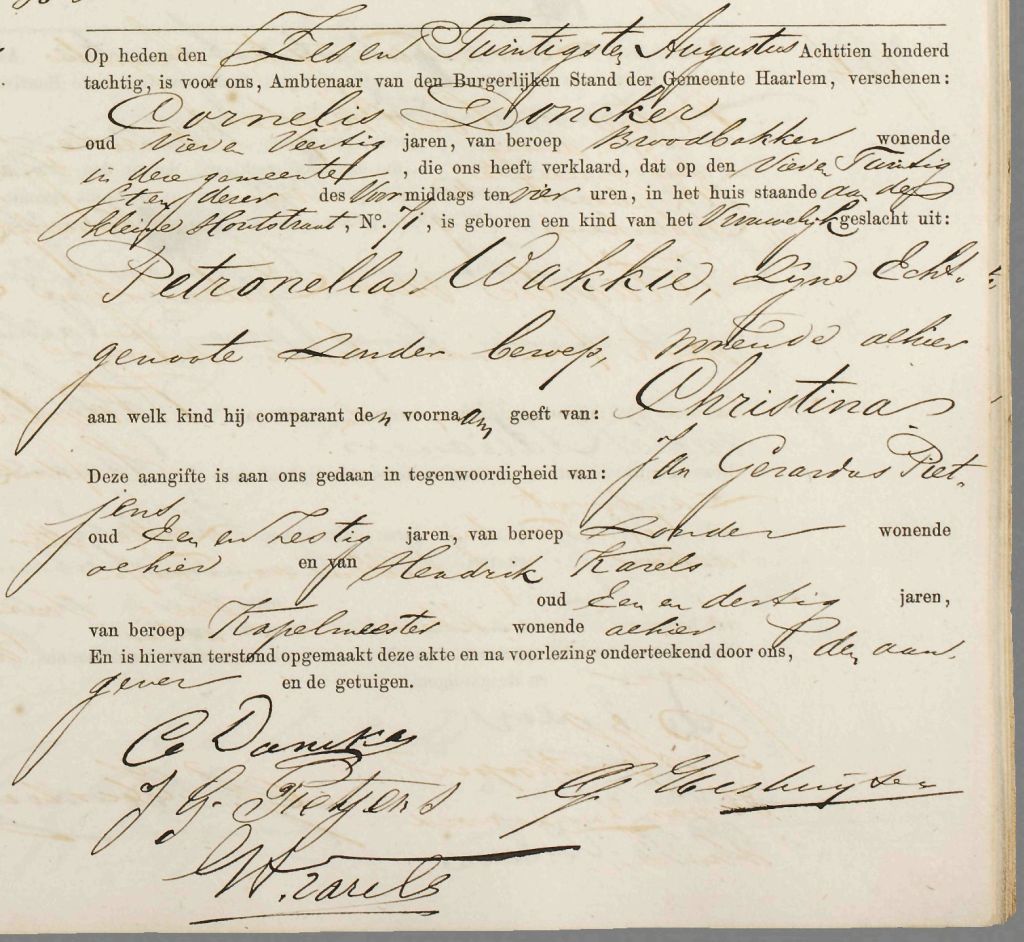 Op heden den Zes en Twintigsten Augustus Achttien honderd
tachtig, is voor ons, Ambtenaar van den Burgerlijken Stand der Gemeente Haarlem, verschenen:
Cornelis Doncker
oud Vier en Veertig jaren, van beroep Broodbakker wonende
in deze gemeente, die ons heeft verklaard, dat op den Vier en Twintig
sten dezer des Voormiddags ten vier uren, in het huis staande aan de
kleine Houtstraat, No. 71, is geboren een kind van het Vrouwelijk geslacht uit:
Petronella Wakkie, zijne Echt-
genoote zonder beroep, wonende alhier
aan welk kind hij comparant den voornaam geeft van: Christina
Deze aangifte is aan ons gedaan in tegenwoordigheid van: Jan Gerardus Piet-
jens
oud Een en Zestig jaren, van beroep zonder wonende
alhier en van Hendrik Karels
oud Een en dertig jaren,
van beroep Kapelmeester wonende alhier
En is hiervan terstond opgemaakt deze akte en na voorlezing onderteekend door ons, den aan-
gever en de getuigen.
C Doncker
J G. Pietjens
H. Karels